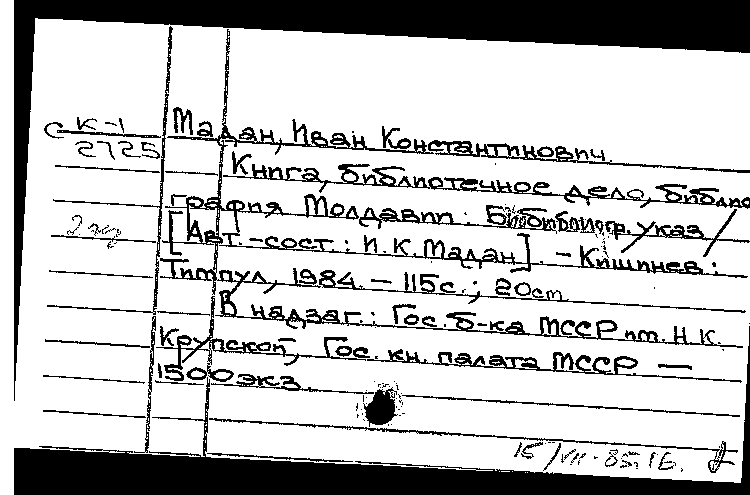 С К-1
2725
Мадан, Иван Константинович.
Книга, библиотечное дело, библио
графия Молдавии : Библиогр. указ /
[Авт.-сост. : И.К. Мадан]. - Кишинев :
Тимпул, 1984. - 115с.; 20см
2 экз
В надзаг.: Гос. б-ка МССР им. Н.К.
Крупской, Гос. кн. палата МССР. —
1500экз.
15/VII-85. 16.